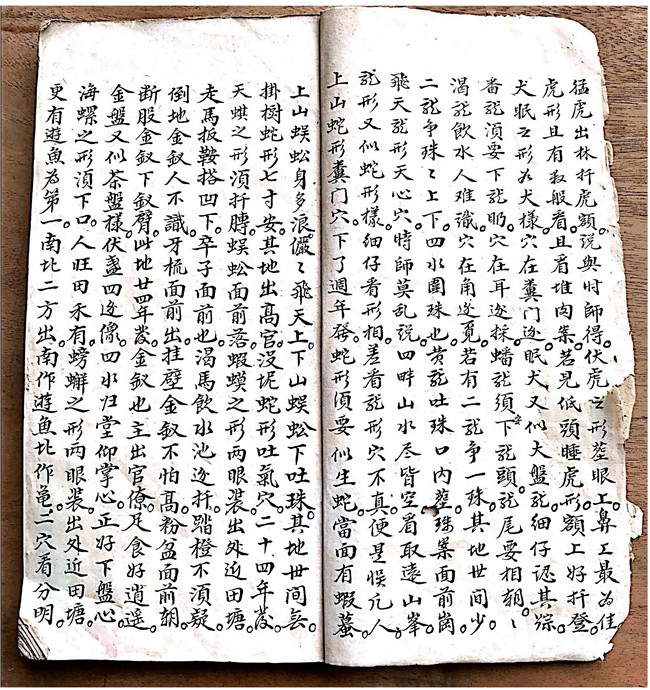 猛虎出林扦虎額。說與時師得伏虎之形塟眼上鼻上最為佳
虎形且有數般看且看堆肉案。若見低頭睡虎形額上好扦登。
犬眠之形如犬樣穴在糞門边眠犬又似犬盤龍細仔認其踪
番龍須要下龍肋。穴在耳边採蟠龍須下龍頭龍尾要相朝〻
渴龍飲水人难識穴在角边覓若有二龍争一珠其地世间少
二龍争珠〻上下四水圍珠也黄龍吐珠口内塟珠案面前崗
飛天龍形天心穴。時師莫乱說四畔山水尽皆空看取遠山峯
龍形又似蛇形樣細仔看形相差看龍形穴不真便是悞几人。
上山蛇形糞门穴。下了週年發蛇形須要似生蛇當面有蝦蟇
上山蜈蚣身多浪儼〻飛天上下山蜈蚣下吐珠其地世间無。
掛樹蛇形七寸安其地出高官没坭蛇形吐氣穴。二十四年發。
天蜞之形須扦膊蜈蚣面前落蝦蟆之形两眼裝出外近田塘。
走馬扳鞍搭凹下。卒子面前也渴馬飲水池边扦踏橙不須疑
倒地金釵人不識牙梳面前出挂壁金釵不怕高粉盆面前朝。
断股金釵下釵臂此地廿四年發金釵也主出官僚足食好逍遥
金盤又似茶盤樣伏盞四边像四水归堂仰掌心正好下盤心。
海螺之形須下口。人旺田禾有螃蠏之形两眼裝出外近田塘。
更有遊魚為第一南北二方出南作遊魚北作亀二穴看分明。